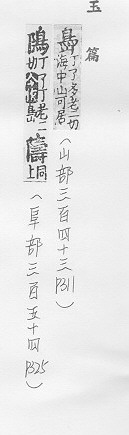 玉篇
島丁了多老二切
海中山可居
(山部三百四十三P311)
隝丁了丁老二
切公山也島 隯同上
(阜部三百五十四P325)